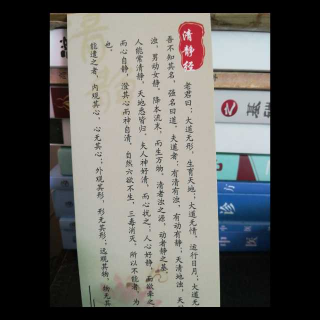 清静经
老君曰：大道无形，生育天地；大道无情，运行日月；大道无
吾不知其名，强名曰道。夫道者：有清有浊，有动有静；天清地浊，天
浊，男动女静，降本流末，而生万物。清者浊之源，动者静之基
人能常清静，天地悉皆归。夫人神好清，而心扰之；人心好静，而欲牵之
而心自静，澄其心而神自清，自然六欲不生，三毒消灭。所以不能者，为
也。
能遣之者，内观其心，心无其心；外观其形，形无其形；远观其物，物无其
方
诊